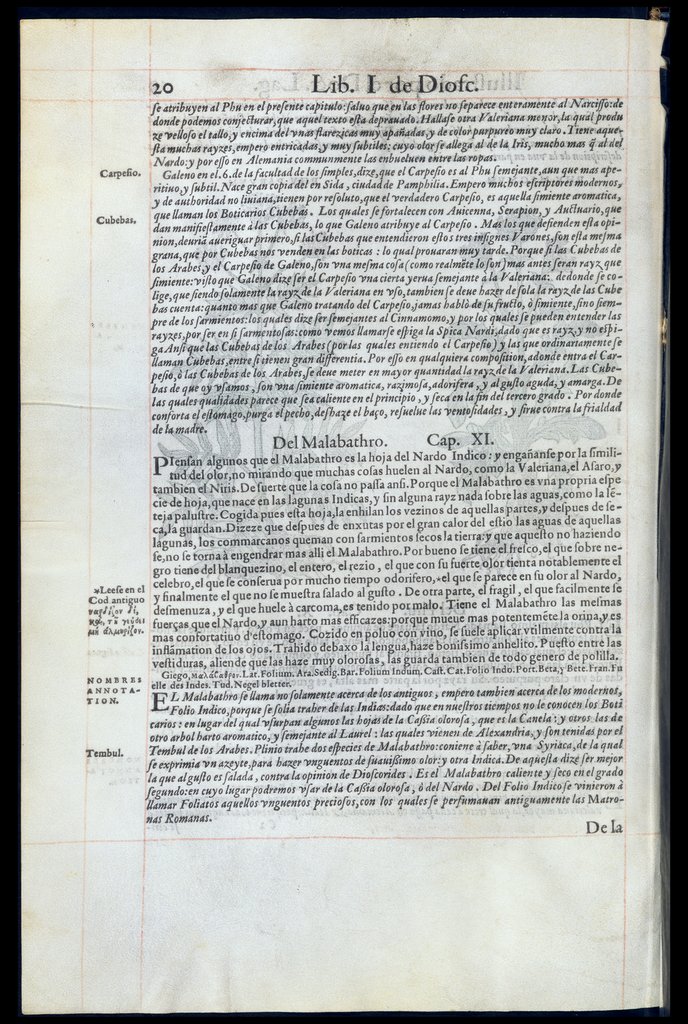 20 Lib. I de Diosc.
se atribuyen al Phu en el presente capitulo: saluo que en las flores no se parece enteramente al Narcisso: de
donde podemos conjecturar, que aquel texto esta deprauado. Hallase otra Valeriana menor, la qual produ
ze velloso el tallo, y encima del vnas florezicas muy apañadas, y de color purpureo muy claro. Tiene aque-
sta muchas rayzes, empero entricadas, y muy subtiles: cuyo olor se allega al de la Iris, mucho mas q̃ al del
Nardo: y por esso en Alemania communmente las enbueluen entre las ropas.
Carpesio.
Galeno en el.6. de la facultad de los simples, dize, que el Carpesio es al Phu semejante, aun que mas ape-
ritiuo, y subtil. Nace gran copia del en Sida, ciudad de Pamphilia. Empero muchos escriptores modernos,
y de authoridad no liuiana, tienen por resoluto, que el verdadero Carpesio, es aquella simiente aromatica,
Cubebas.
que llaman los Boticarios Cubebas. Los quales se fortalecen con Auicenna, Serapion, y Auctuario, que
dan manifiestamente à las Cubebas, lo que Galeno atribuye al Carpesio. Mas los que defienden esta opi-
nion, deuria aueriguar primero, si las Cubebas que entendieron estos tres insignes Varones, son esta mesma
grana, que por Cubebas nos venden en las boticas: lo qual prouaran muy tarde. Porque si las Cubebas de
los Arabes, y el Carpesio de Galeno, son vna mesma cosa (como realmẽte lo son) mas antes seran rayz que
simiente: visto que Galeno dize ser el Carpesio vna cierta yerua semejante à la Valeriana: de donde se co-
lige, que siendo solamente la rayz de la Valeriana en vso, tambien se deue hazer de sola la rayz de las Cube
bas cuenta: quanto mas que Galeno tratando del Carpesio, jamas habló de su fructo, ò simiente, sino siem-
pre de los sarmientos: los quales dize ser semejantes al Cinnamomo, y por los quales se pueden entender las
rayzes, por ser en si sarmentosas: como vemos llamarse espiga la Spica Nardi, dado que es rayz, y no espi-
ga Ansi que las Cubebas de los Arabes (por las quales entiendo el Carpesio) y las que ordinariamente se
llaman Cubebas, entre si tienen gran differentia. Por esso en qualquiera composition, adonde entra el Car-
pesio, ò las Cubebas de los Arabes, se deue meter en mayor quantidad la rayz de la Valeriana. Las Cube-
bas de que oy vsamos, son vna simiente aromatica, razimosa, adorifera, y al gusto aguda, y amarga. De
las quales qualidades parece que sea caliente en el principio, y seca en la fin del tercero grado. Por donde
conforta el estomago, purga el pecho, deshaze el baço, resuelue las ventosidades, y sirue contra la frialdad
de la madre.
Del Malabathro. Cap. XI.
PIensan algunos que el Malabathro es la hoja del Nardo Indico: y engañanse por la simili-
tud del olor, no mirando que muchas cosas huelen al Nardo, como la Valeriana, el Asaro, y
tambien el Niris. De suerte que la cosa no passa ansi. Porque el Malabathro es vna propria espe
cie de hoja, que nace en las lagunas Indicas, y sin alguna rayz nada sobre las aguas, como la lẽ-
teja palustre. Cogida pues esta hoja, la enhilan los vezinos de aquellas partes, y despues de se-
ca, la guardan. Dizeze que despues de enxutas por el gran calor del estio las aguas de aquellas
lagunas, los commarcanos queman con sarmientos secos la tierra: y que aquesto no haziendo
se, no se torna à engendrar mas alli el Malabathro. Por bueno se tiene el fresco, el que sobre ne-
gro tiene del blanquezino, el entero, el rezio, el que con su fuerte olor tienta notablemente el
*Leese en el
Cod. antiguo
celebro, el que se conserua por mucho tiempo odorifero, *el que se parece en su olor al Nardo,
y finalmente el que no se muestra salado al gusto. De otra parte, el fragil, el que facilmente se
desmenuza, y el que huele à carcoma, es tenido por malo. Tiene el Malabathro las mesmas
fuerças que el Nardo, y aun harto mas efficazes: porque mueue mas potentemẽte la orina, y es
mas confortatiuo d'estomago. Cozido en poluo con vino, se suele aplicar vtilmente contra la
inflãmation de los ojos. Trahido debaxo la lengua, haze bonissimo anhelito. Puesto entre las
vestiduras, aliende que las haze muy olorosas, las guarda tambien de todo genero de polilla.
NOMBRES
Griego, μαλάβαθρον. Lat. Folium. Ara. Sedig. Bar. Folium Indum. Cast. Cat. Folio Indo. Port. Beta, y Bete. Fran. Fu
elle des Indes. Tud. Negel bletter.
ANNOTA-
TION.
EL Malabathro se llama no solamente acerca de los antiguos, empero tambien acerca de los modernos,
Folio Indico, porque se solia traher de las Indias: dado que en nuestros tiempos no le conocen los Boti
carios: en lugar del qual vsurpan algunos las hojas de la Cassia olorosa, que es la Canela: y otros las de
otro arbol harto aromatico, y semejante al Laurel: las quales vienen de Alexandria, y son tenidas por el
Tembul.
Tembul de los Arabes. Plinio trahe dos especies de Malabathro: conuiene à saber, vna Syriaca, de la qual
se exprimia vn azeyte, para hazer vnguentos de suauissimo olor: y otra Indica. De aquesta dize ser mejor
la que al gusto es salada, contra la opinion de Dioscorides. Es el Malabathro caliente y seco en el grado
segundo: en cuyo lugar podremos vsar de la Cassia olorosa, ò del Nardo. Del Folio Indico se vinieron à
llamar Foliatos aquellos vnguentos preciosos, con los quales se perfumauan antiguamente las Matro-
nas Romanas.
De la